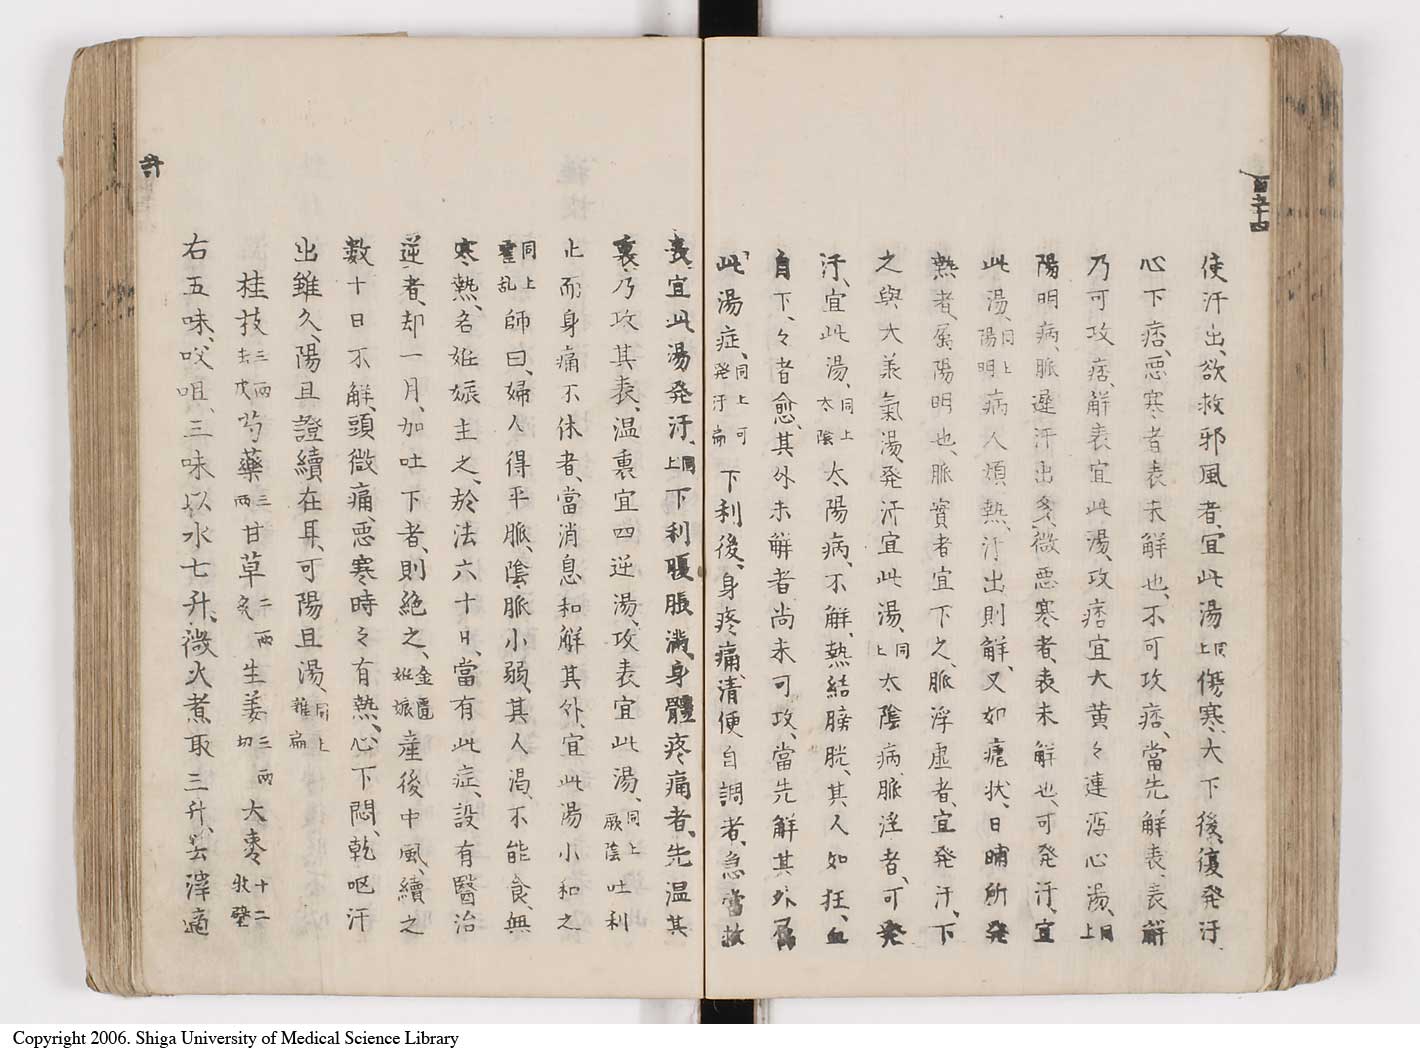 使汗出、欲救邪風者、宜此湯、同上傷寒大下後、復発汗
心下痞、悪寒者表未解也、不可攻痞、當先解表、表解
乃可攻痞、解表宜此湯、攻痞宜大黄々連瀉心湯、同上
陽明病、脈遅汗出多、微悪寒者、表未解也、可発汗、宜
此湯、同上陽明病人煩熱、汗出則解、又如瘧状、日晡所発
熱者、属陽明也、脈實者宜下之、脈浮虚者、宜発汗、下
之與大承氣湯、発汗宜此湯、同上太陰病、脈浮者、可発
汗、宜此湯、同上太陰太陽病、不解、熱結膀胱、其人如狂、血
自下、々者愈、其外未解者尚未可攻、當先解其外、属
此湯症、同上可発汗扁下利後、身疼痛、清便自調者、急當救
表、宜此湯発汗、同上下利腹脹満、身體疼痛者、先温其
裏、乃攻其表、温裏宜四逆湯、攻表宜此湯、同上厥陰吐利
止而身痛不休者、當消息和解其外、宜此湯小和之
同上霍乱師曰、婦人得平脈、陰脈小弱、其人渇、不能食、無
寒熱、名姙娠主之、於法六十日、當有此症、設有醫治
逆者、却一月、加吐下者、則絶之、金匱姙娠産後中風、續之
数十日不解、頭微痛、悪寒時々有熱、心下悶、乾呕汗
出雖久、陽旦證續在耳、可陽旦湯、同上雜扁
桂技三両去皮芍藥三両甘草二両炙生姜三両切大棗十二枚擘
右五味、㕮咀、三味以水七升、微火煮取三升、去滓適